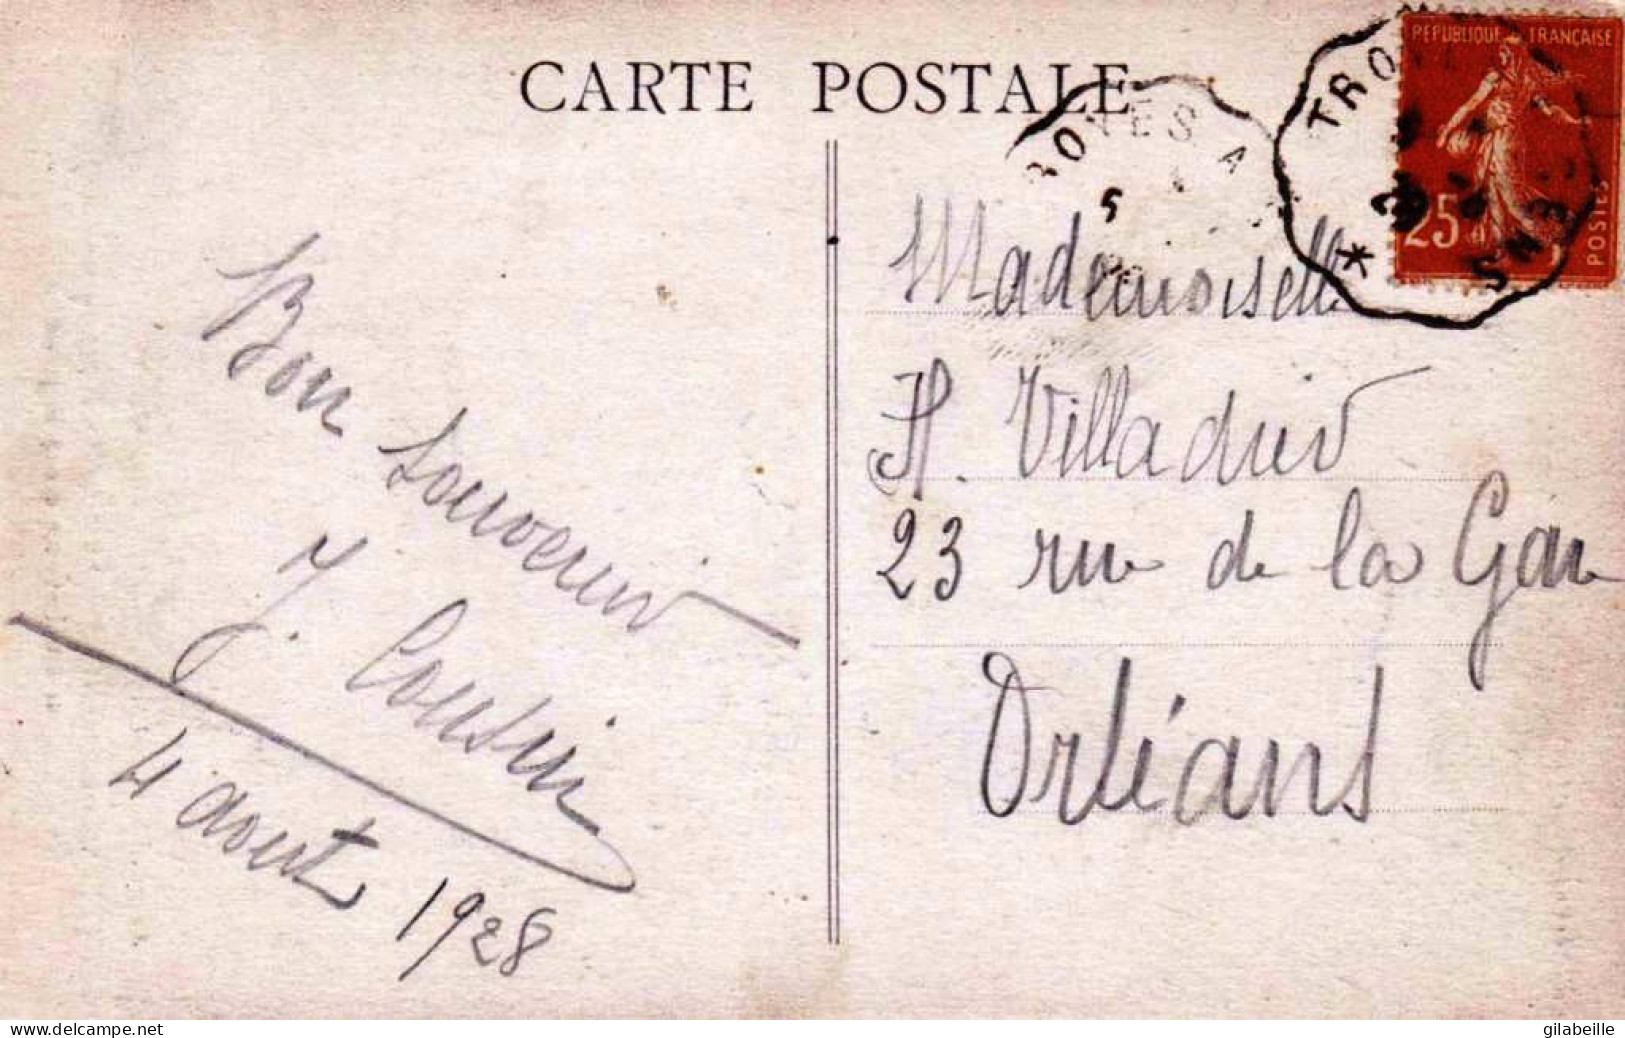 CARTE POSTALE
RÉPUBLIQUE FRANÇAISE
25
POSTES
Bon souvenir
J. Cousin
4 aout 1928
Mademoiselle
H. Villadier
23 rue de la Gare
Orléans
www.delcampe.net
gilabeille